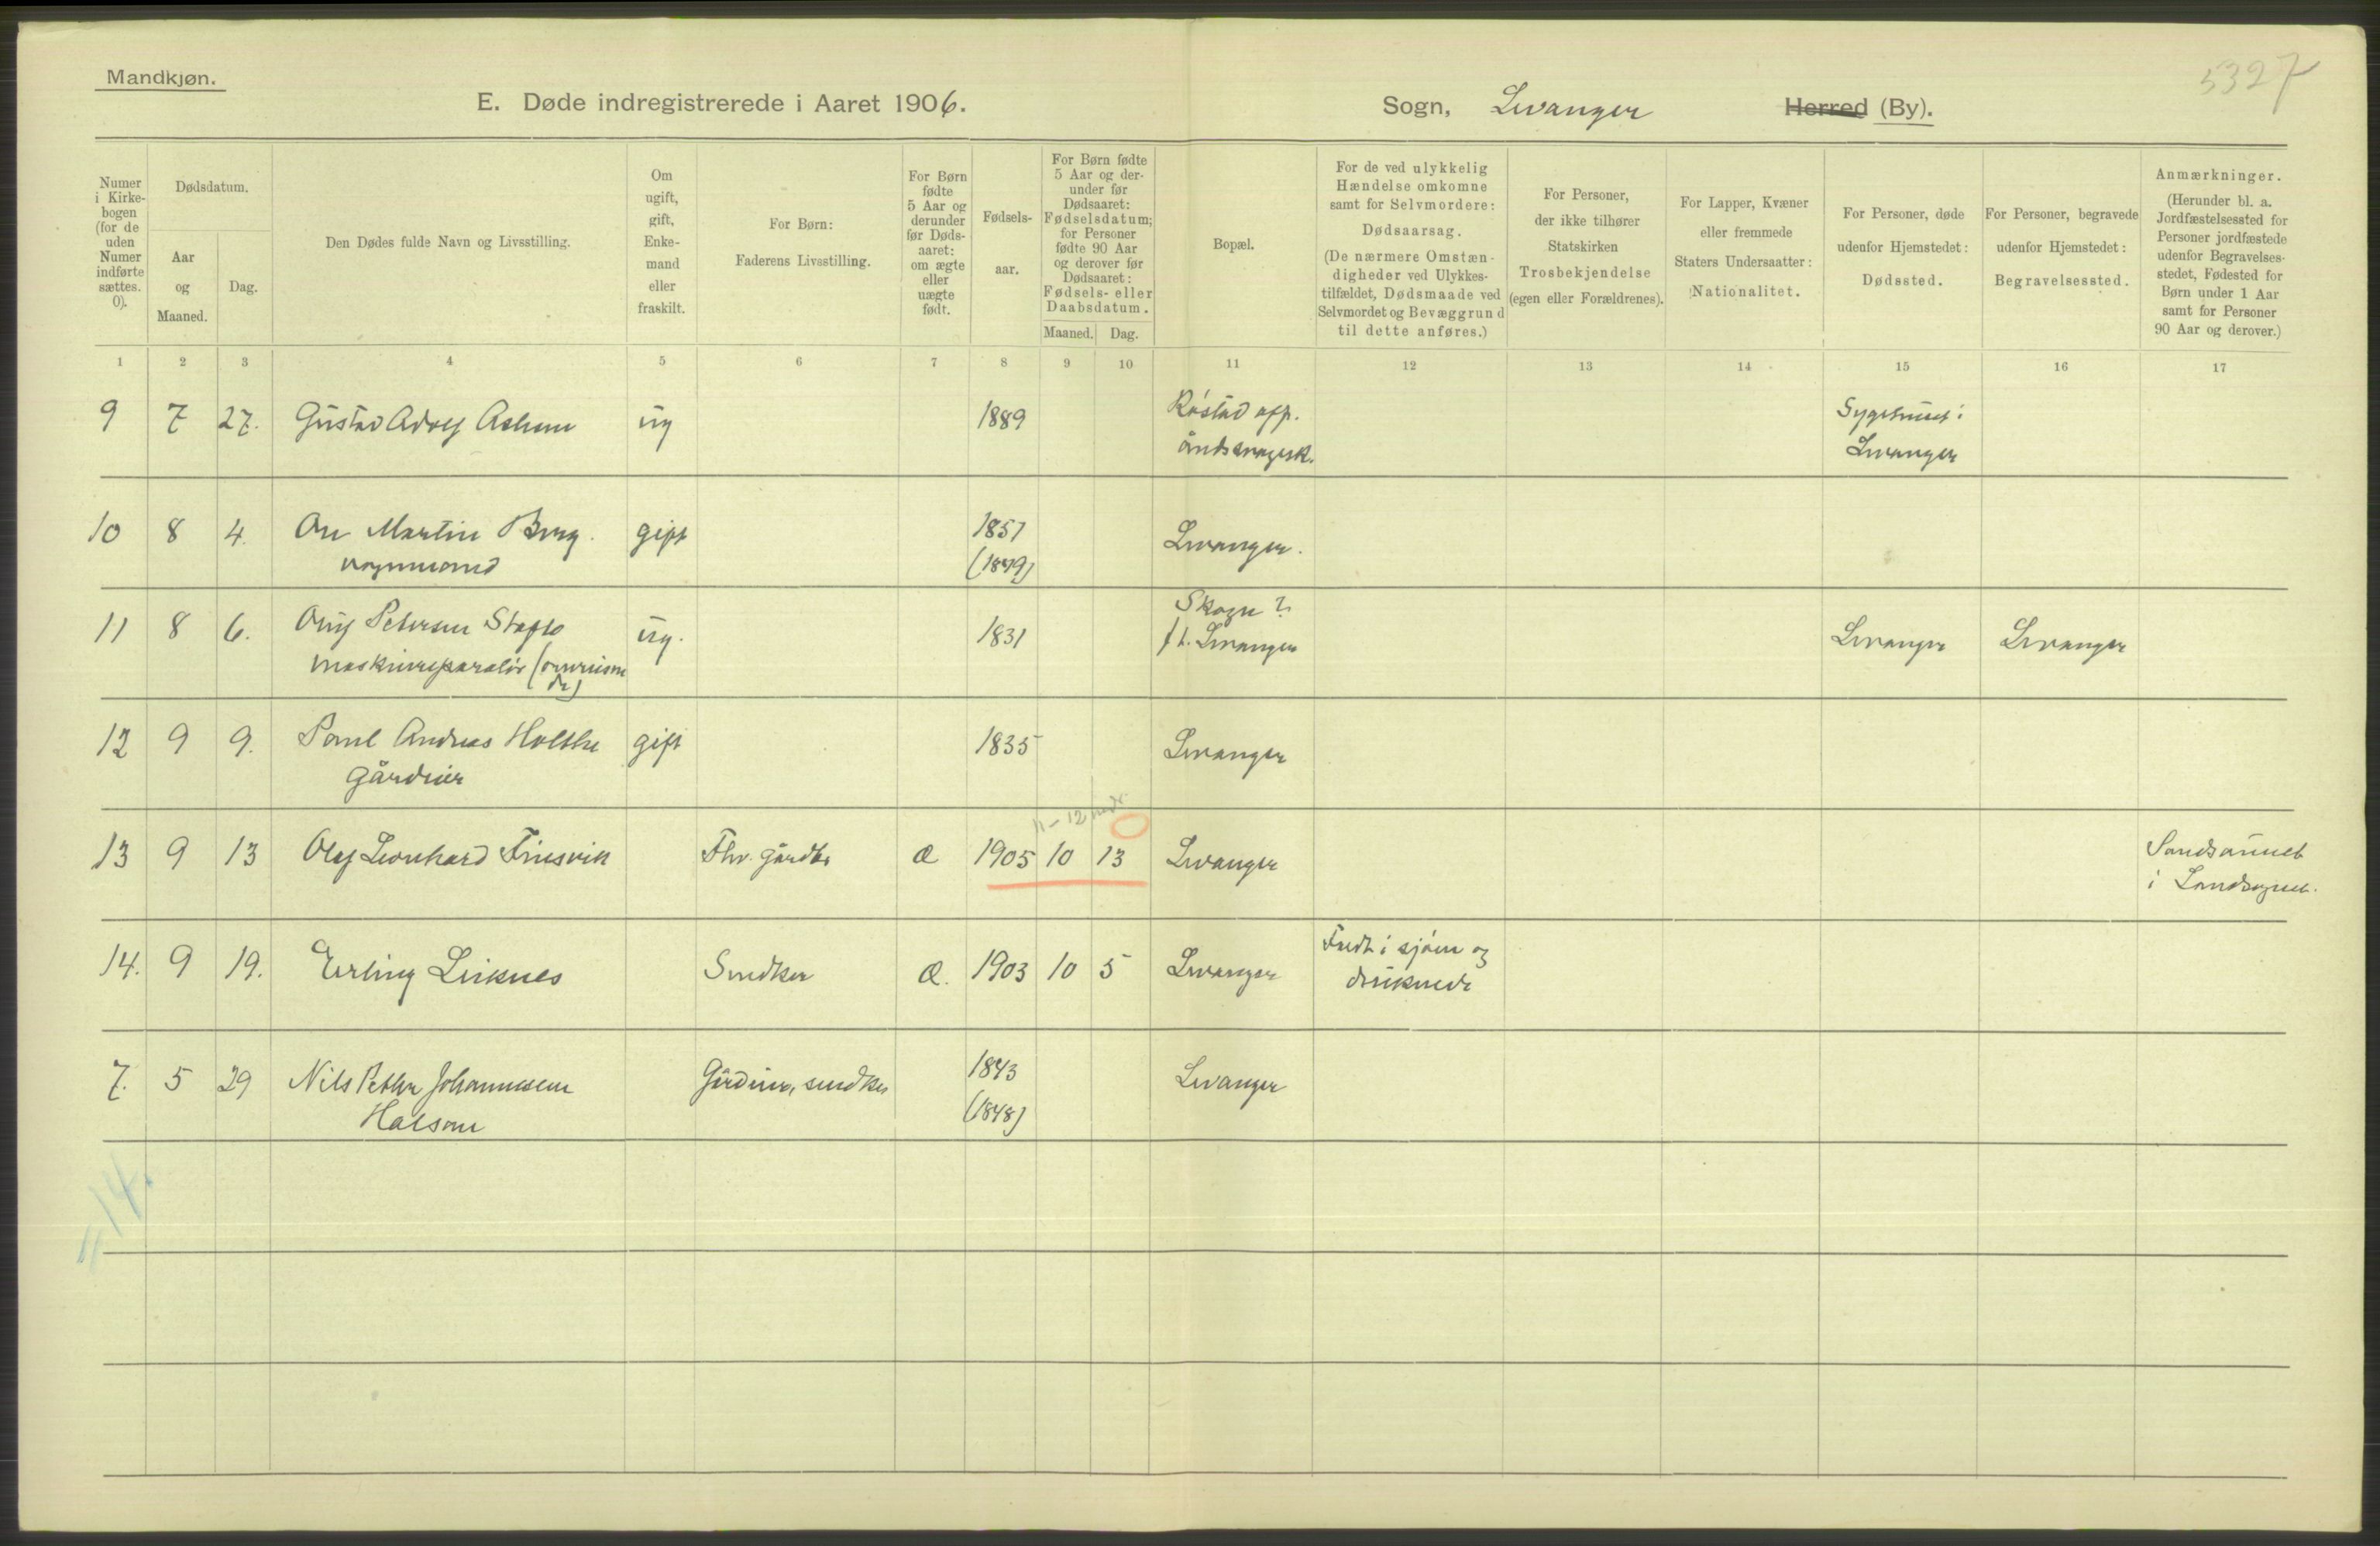 Mandkjøn.
5327
E. Døde indregistrerede i Aaret 1906.
Sogn, Levanger Herred (By).
Numer i Kirke-bogen (for de uden Numer indførte sættes. 0).
Dødsdatum.
Aar og Maaned.
Dag.
Den Dødes fulde Navn og Livsstilling.
Om ugift, gift, Enke-mand eller fraskilt.
For Børn: Faderens Livsstilling.
For Børn fødte 5 Aar og derunder før Døds-aaret: om ægte eller uægte født.
Fødsels-aar.
For Børn fødte 5 Aar og der-under før Dødsaaret: Fødselsdatum; for Personer fødte 90 Aar og derover før Dødsaaret: Fødsels- eller Daabsdatum.
Maaned. Dag.
Bopæl.
For de ved ulykkelig Hændelse omkomne samt for Selvmordere: Dødsaarsag. (De nærmere Omstæn-digheder ved Ulykkes-tilfældet, Dødsmaade ved Selvmordet og Bevæggrund til dette anføres.)
For Personer, der ikke tilhører Statskirken Trosbekjendelse (egen eller Forældrenes).
For Lapper, Kvæner eller fremmede Staters Undersaatter: Nationalitet.
For Personer, døde udenfor Hjemstedet: Dødssted.
For Personer, begravede udenfor Hjemstedet: Begravelsessted.
Anmærkninger. (Herunder bl. a. Jordfæstelsessted for Personer jordfæstede udenfor Begravelses-stedet, Fødested for Børn under 1 Aar samt for Personer 90 Aar og derover.)
1 2 3 4 5 6 7 8 9 10 11 12 13 14 15 16 17
9 7 27. Gustav Adolf ug 1889 Røstad opf. Sygehuset i
åndssvagesk. Levanger
10 8 4. Ole Martin Berg. gift 1851 Levanger.
vognmand (1849)
11 8 6. Petersen ug. 1831 Skogn ? Levanger Levanger
maskinreparatør (omreisen f. t. Levanger
de)
12 9 9. Paul Andreas Holthe gift 1835 Levanger
Gårdeier
11-12 mdr. 0
13 9 13 Olaf Leonhard Finsvik Fhv. gårdbr. Æ 1905 10 13 Levanger
i Landsognet.
14. 9 19. Erling Leiknes Snedker Æ. 1903 10 5 Levanger Faldt i sjøen og
druknede
7. 5 29 Nils Petter Johannesen Gårdeier, snedker 1843 Levanger
Halsan (1848)
14.